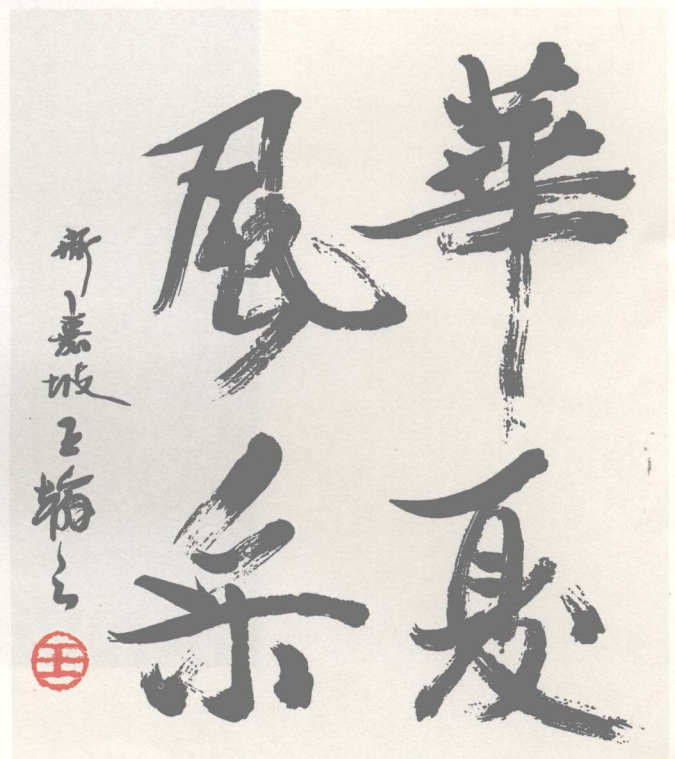 華夏
風采
新嘉坡王翰之
王